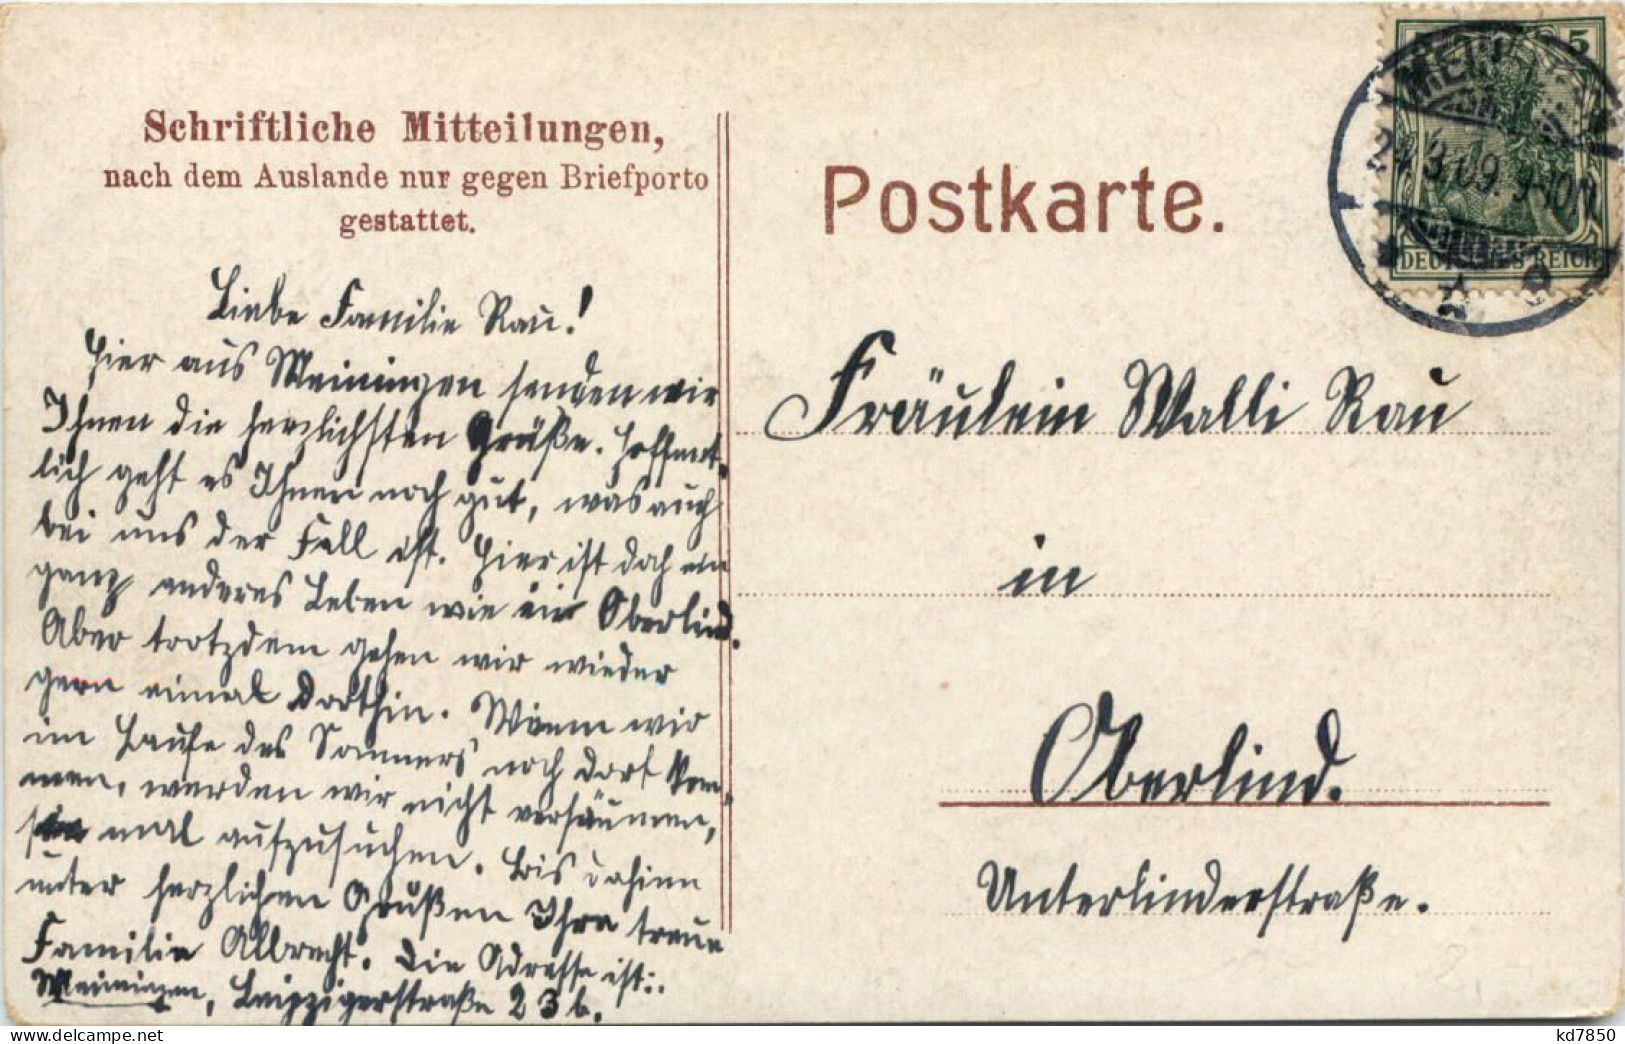 Schriftliche Mitteilungen,
nach dem Auslande nur gegen Briefporto
gestattet.
Postkarte.
5
MEIN
24.3.09. 9-10N
DEUTSCHES REICH
Liebe Familie Rau!
Hier aus Meiningen senden wir
Ihnen die herzlichsten Grüße. Hoffent-
lich geht es Ihnen noch gut, was auch
bei uns der Fall ist. Hier ist doch ein
ganz anderes Leben wie in Oberlind.
Aber trotzdem gehen wir wieder
gern einmal dorthin. Wenn wir
im Laufe des Sommers noch dort kom-
men, werden wir nicht versäumen,
mal aufzusuchen. Bis dahin
unter herzlichen Grüßen Ihre treue
Familie Albrecht. Die Adresse ist:
Meiningen, Leipzigerstraße 23 b.
Fräulein Walli Rau
in
Oberlind.
Unterlinderstraße.
kd7850